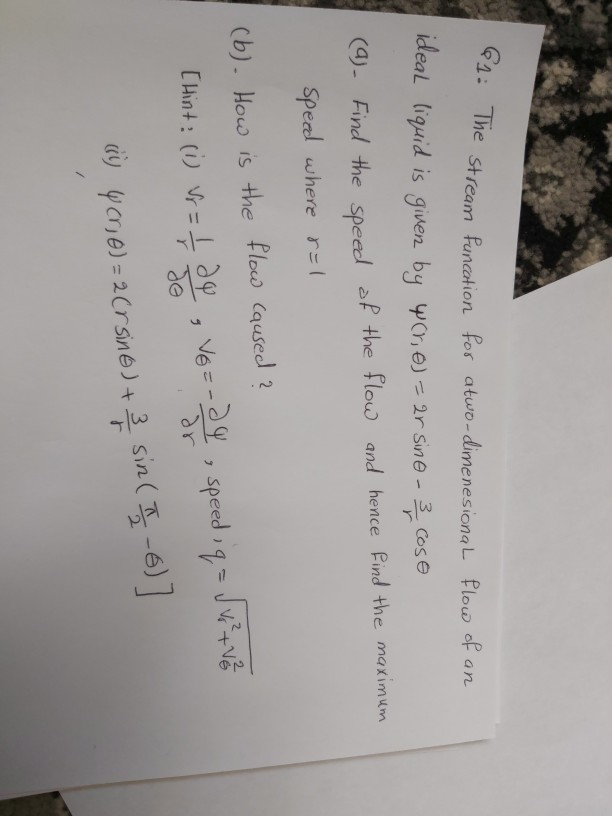 Q1: The stream funcation for atwo-dimenesional flow of an
ideal liquid is given by ψ(r,θ) = 2r sinθ - 3/r cosθ
(a)- Find the speed of the flow and hence find the maximum
speed where r=1
(b)- How is the flow caused?
[Hint: (i) Vr = 1/r ∂ψ/∂θ , Vθ = - ∂ψ/∂r , speed, q = √(Vr² + Vθ²)
(ii) ψ(r,θ) = 2(r sinθ) + 3/r sin(π/2 - θ)]